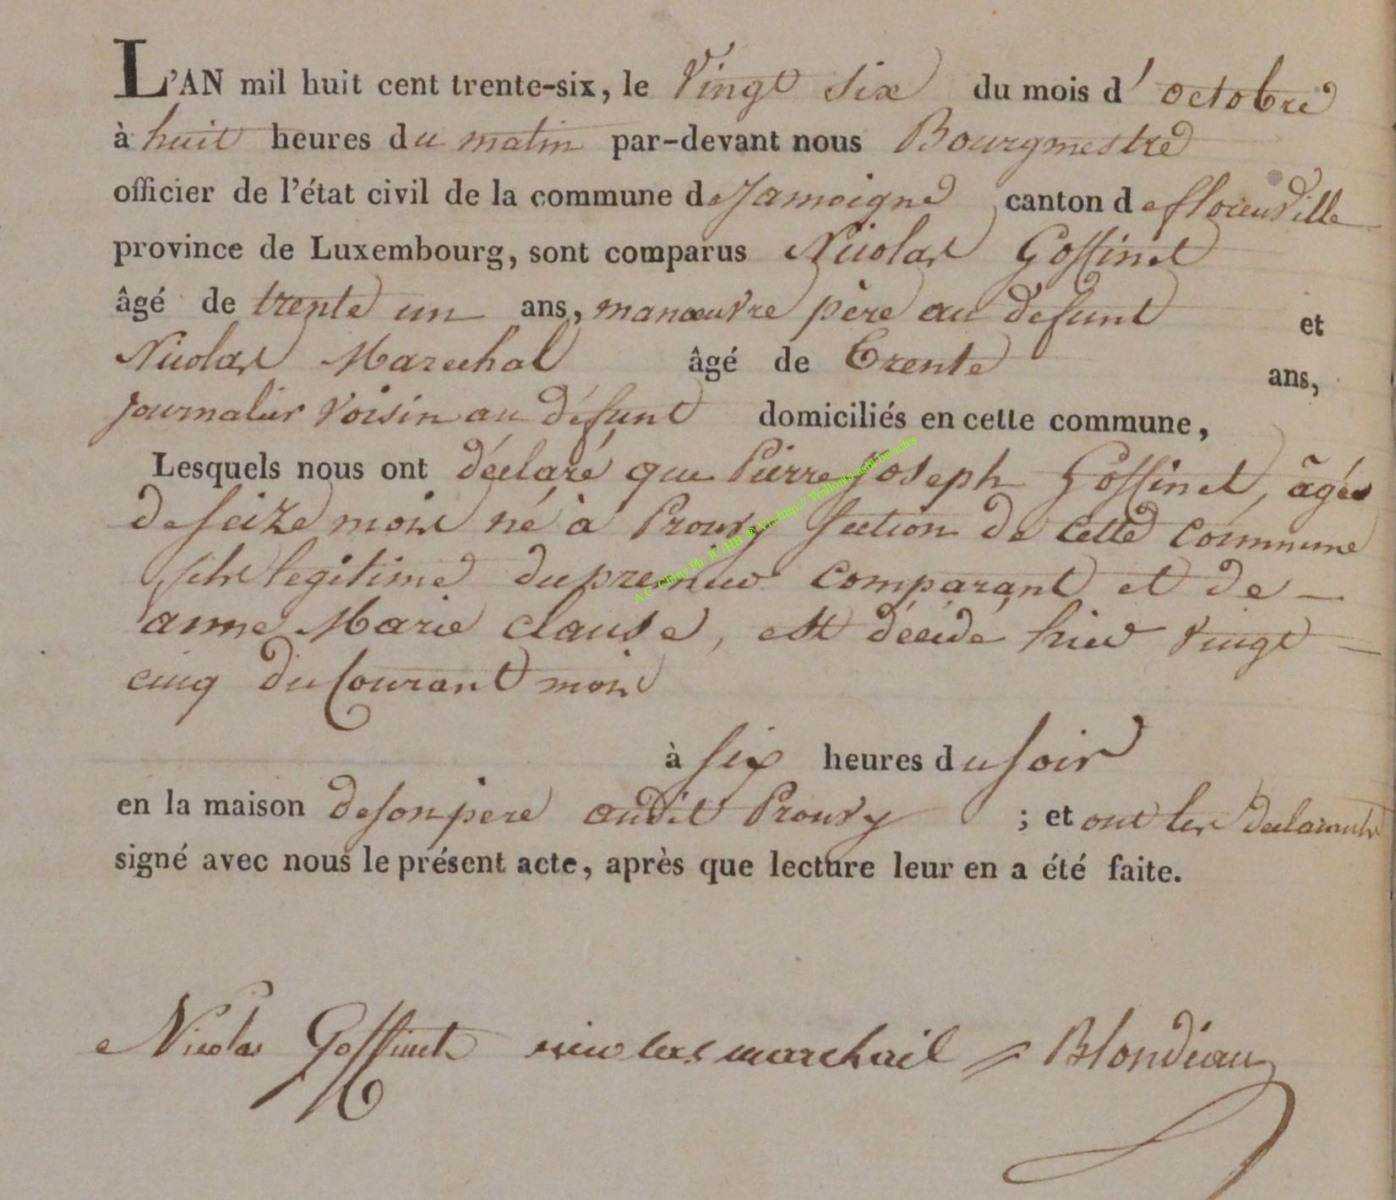 L'AN mil huit cent trente-six, le Vingt six du mois d' octobre
à huit heures du matin par-devant nous Bourgmestre
officier de l'état civil de la commune de Jamoigne canton de florenville
province de Luxembourg, sont comparus Nicolas Goffinet
âgé de trente un ans, manœuvre père au défunt et
Nicolas Marechal âgé de Trente ans,
journalier Voisin au défunt domiciliés en cette commune,
Lesquels nous ont déclaré que Pierre Joseph Goffinet, âgés
de seize mois né à Prouvy section de cette commune
fils legitime du premier comparant et de
anne Marie clause, est décédé hier vingt
cinq du Courant mois
à six heures du soir
en la maison de son pere audit Prouvy ; et ont les déclarants
signé avec nous le présent acte, après que lecture leur en a été faite.
Nicolas Goffinet nicolas marechail Blondiau